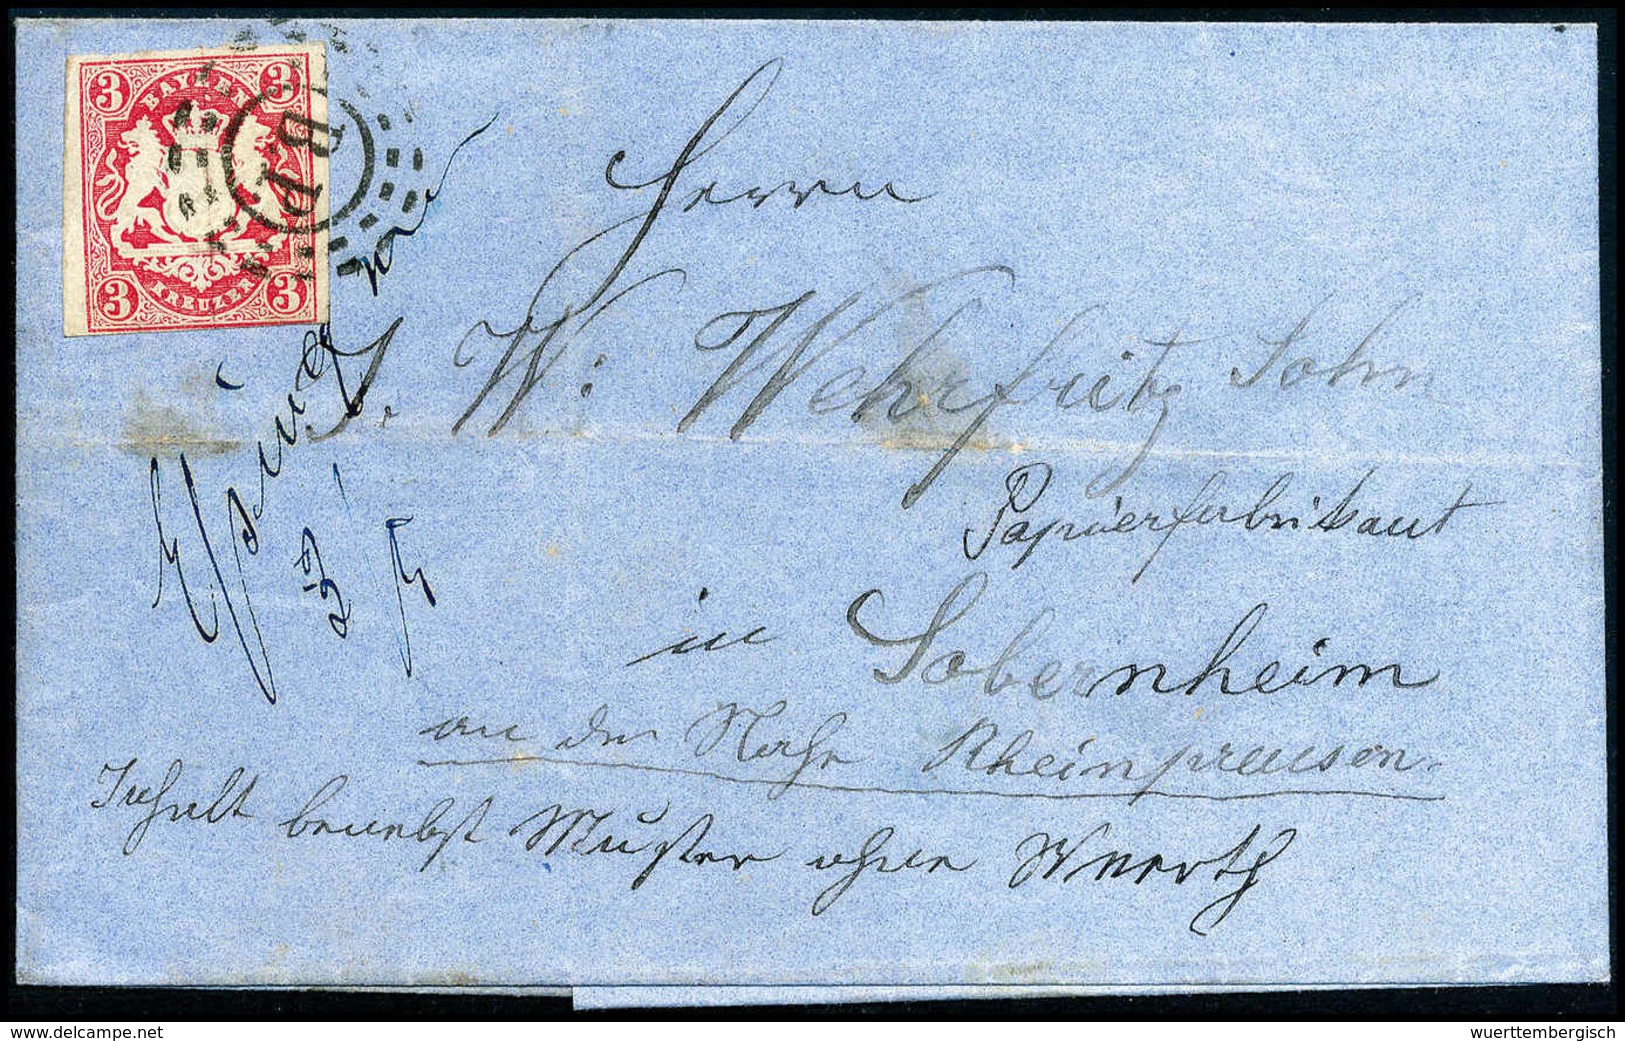 3 BAYERN 3
3 KREUZER 3
B.P.
Herrn
J. W: Wehrfritz Sohn
Papierfabrikant
in Sobernheim
an der Nahe Rheinpreusen.
Inhalt benebst Muster ohne Werth
www.delcampe.net
wuerttembergisch